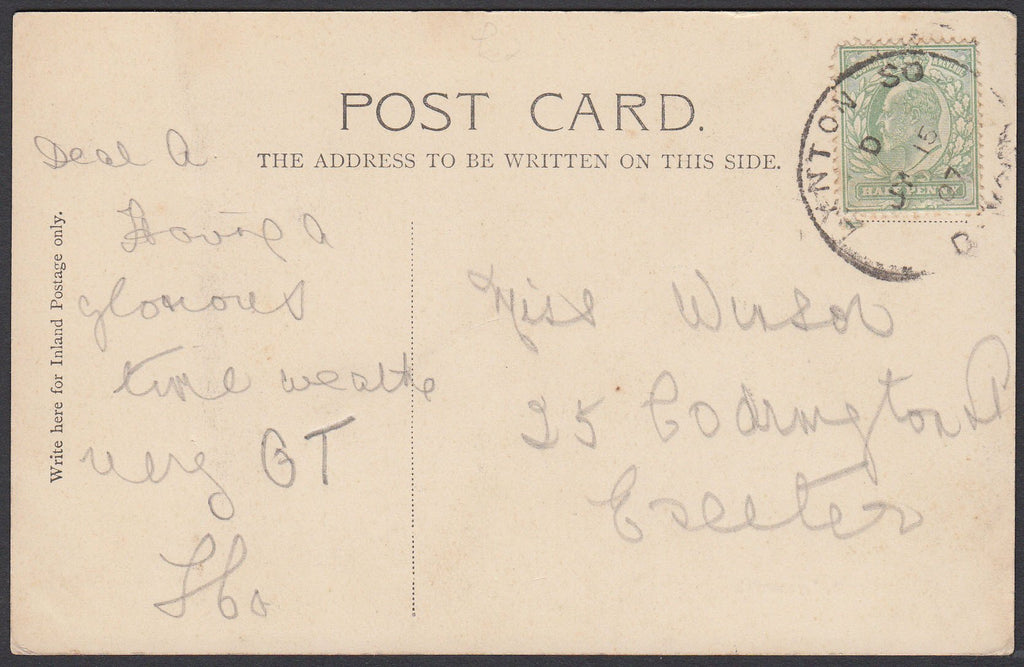 POST CARD.
THE ADDRESS TO BE WRITTEN ON THIS SIDE.
Write here for Inland Postage only.
Dear A
Having a
glorious
time weathe
very GT
LYNTON SO
D
15
07
DEVON
HALF PENNY
Miss Winsor
25 Codrington
Exeter